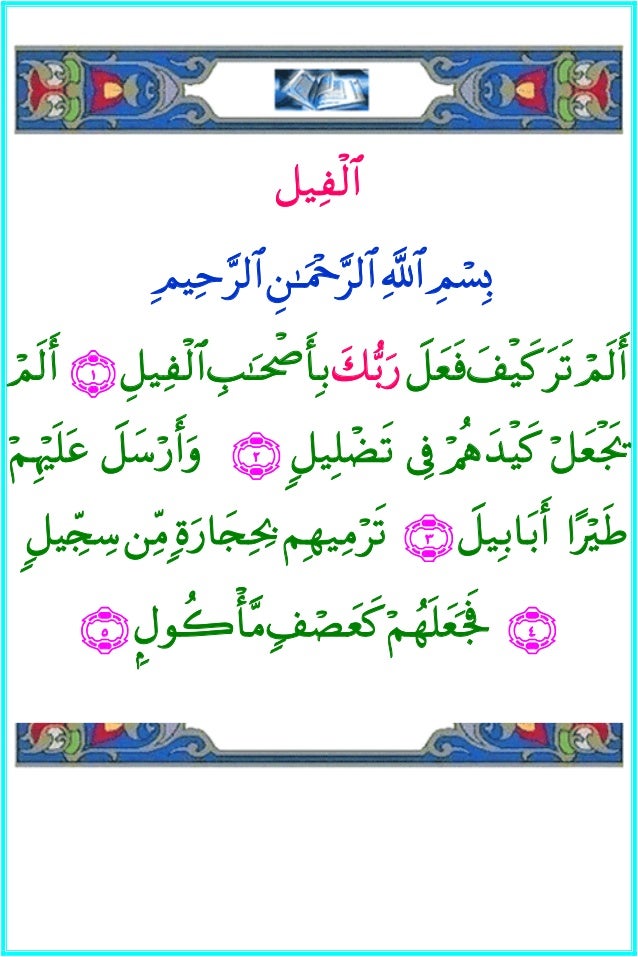 ٱلْفِيل
بِسْمِ ٱللَّهِ ٱلرَّحْمَـٰنِ ٱلرَّحِيمِ
أَلَمْ تَرَ كَيْفَ فَعَلَ رَبُّكَ بِأَصْحَـٰبِ ٱلْفِيلِ ١ أَلَمْ
يَجْعَلْ كَيْدَهُمْ فِى تَضْلِيلٍ ٢ وَأَرْسَلَ عَلَيْهِمْ
طَيْرًا أَبَابِيلَ ٣ تَرْمِيهِم بِحِجَارَةٍ مِّن سِجِّيلٍ
٤ فَجَعَلَهُمْ كَعَصْفٍ مَّأْكُولٍۭ ٥